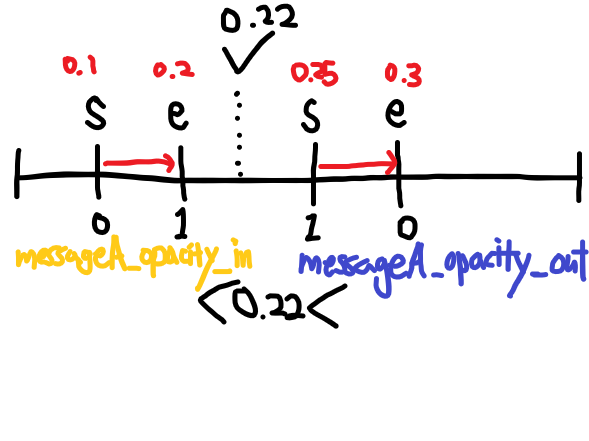 0.22
0.1 0.2 0.25 0.3
s e s e
0 1 1 0
messageA_opacity_in messageA_opacity_out
<0.22<